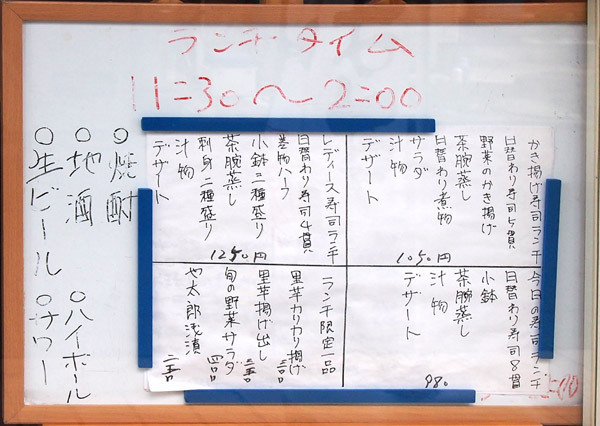 ランチタイム
11:30〜2:00
かき揚げ寿司ランチ
日替わり寿司5貫
野菜のかき揚げ
茶腕蒸し
日替わり煮物
サラダ
汁物
デザート
1050円
レディース寿司ランチ
日替わり寿司4貫
巻物ハーフ
小鉢二種盛り
茶腕蒸し
刺身二種盛り
汁物
デザート
1250円
今日の寿司ランチ
日替わり寿司8貫
小鉢
茶腕蒸し
汁物
デザート
980
ランチ限定一品
里芋カリカリ揚げ
里芋揚げ出し
旬の野菜サラダ
や太郎浅漬
○焼酎
○地酒
○生ビール
○ハイボール
○サワー